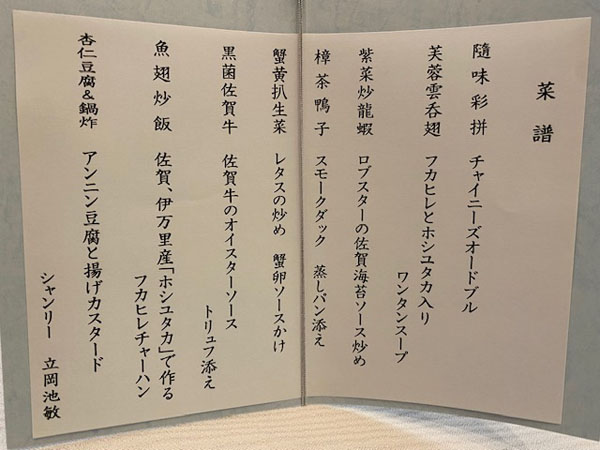 菜譜
隨味彩拼 チャイニーズオードブル
芙蓉雲呑翅 フカヒレとホシユタカ入り
ワンタンスープ
紫菜炒龍蝦 ロブスターの佐賀海苔ソース炒め
樟茶鴨子 スモークダック 蒸しパン添え
蟹黄扒生菜 レタスの炒め 蟹卵ソースかけ
黒菌佐賀牛 佐賀牛のオイスターソース
トリュフ添え
魚翅炒飯 佐賀、伊万里産「ホシユタカ」で作る
フカヒレチャーハン
杏仁豆腐&鍋炸 アンニン豆腐と揚げカスタード
シャンリー 立岡池敏